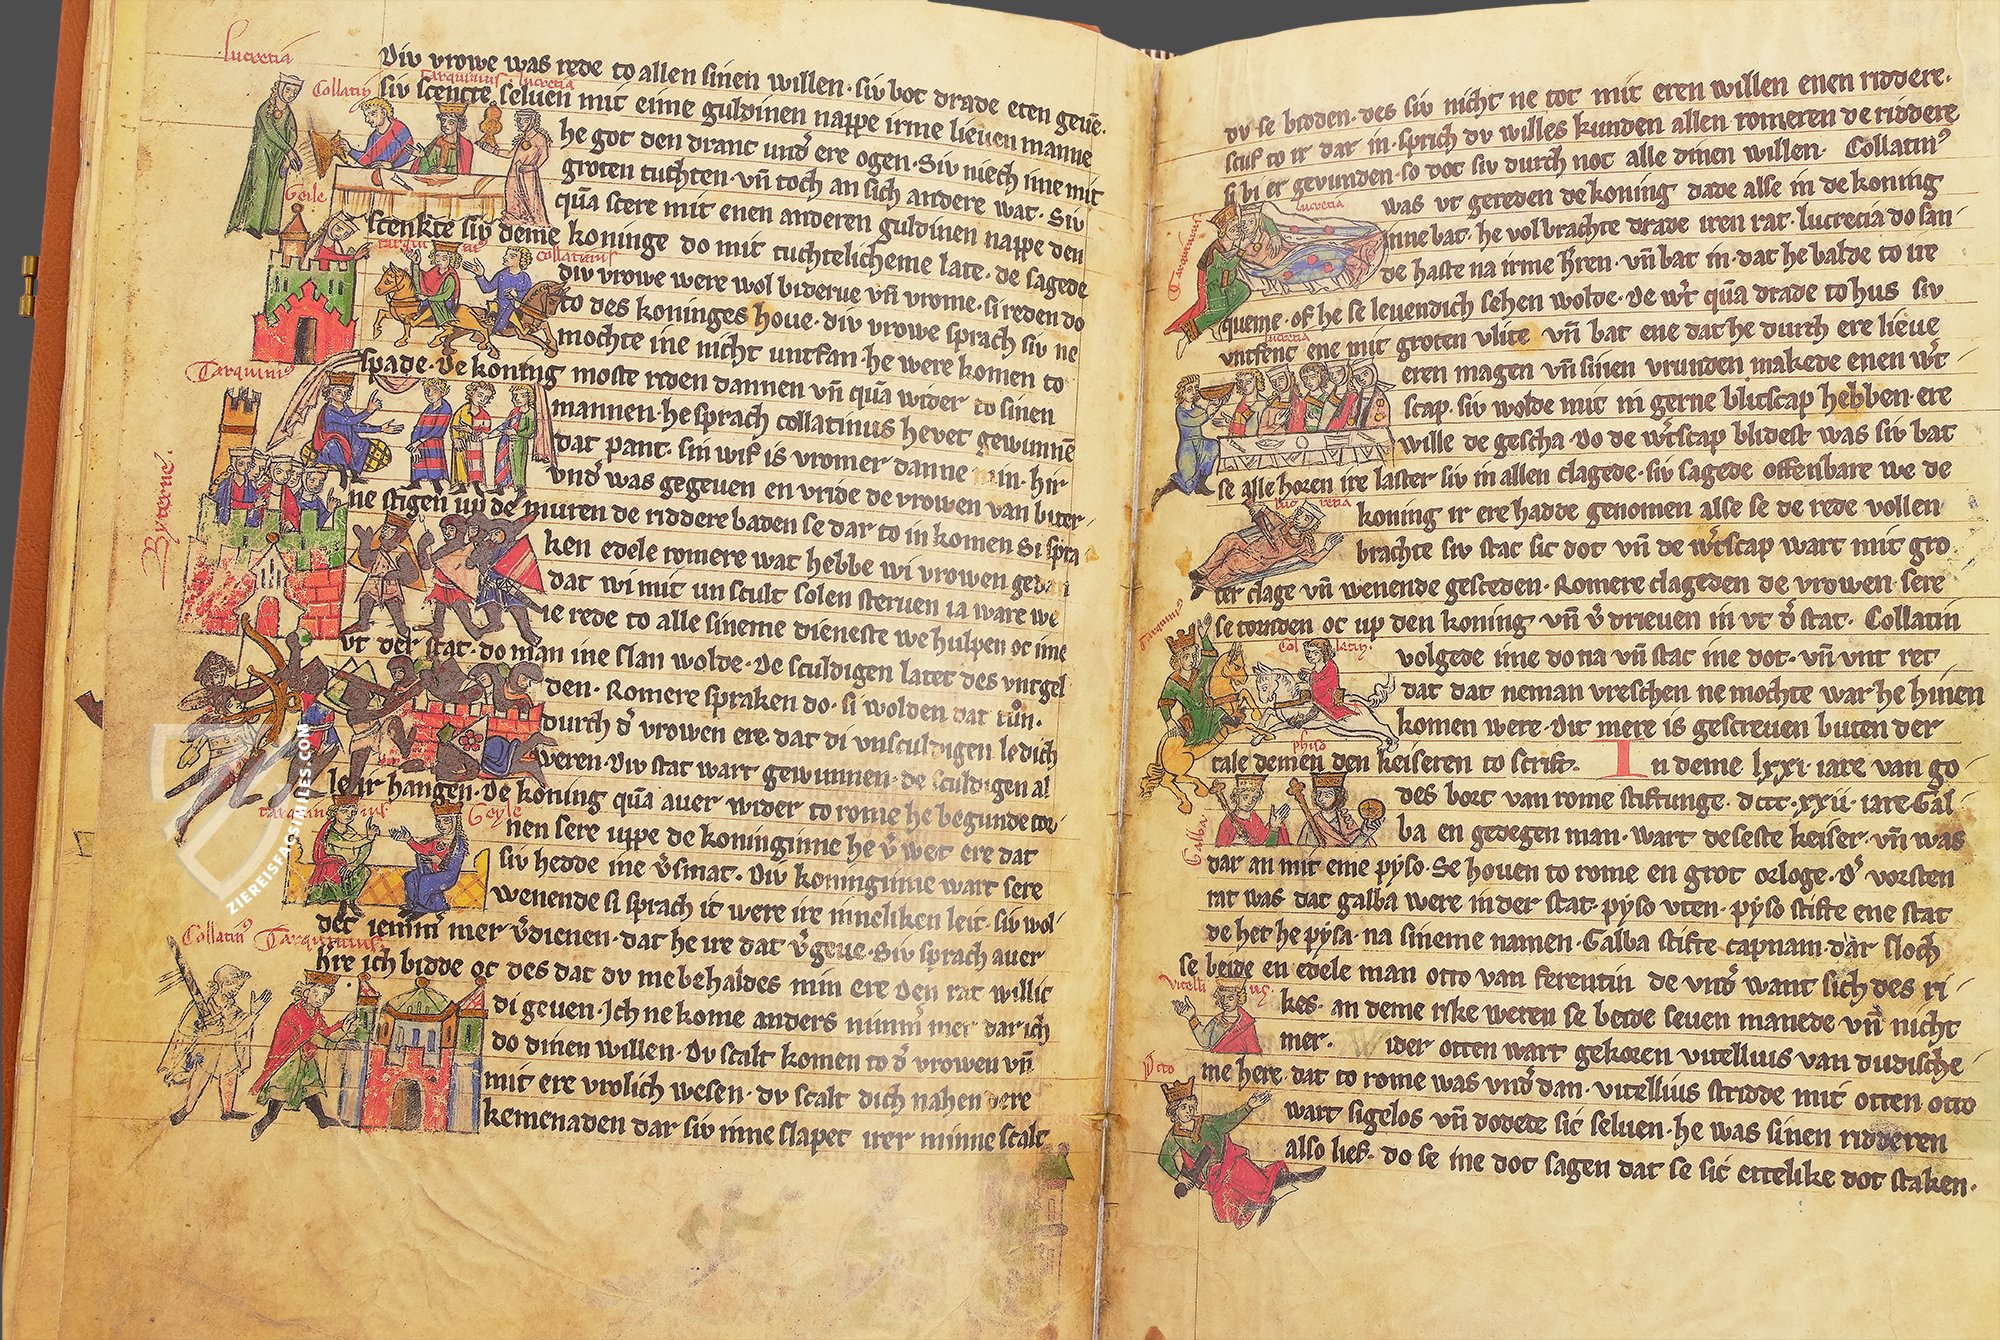 lucretia
Div vrowe was rede to allen sinen willen · siv bot drade eten geuē ·
Collatin tarquinius lucretia
siv scencte seluen mit eime guldinen nappe irme lieuen manne
he got den dranc und̄ ere ogen · Siv niech ime mit
groten tuchten · vn̄ toch an sich andere wat · Siv
Geile
quā scere mit enen anderen guldinen nappe den
scenkte siv deme koninge do mit tuchtelicheme late · de sagede
tarquinius collatinus
div vrowe were wol biderue vn̄ vrome · si reden do
to des koninges houe · div vrowe sprach siv ne
mochte ine nicht untfan · he were komen to
Tarquini⁹
spade · De koning moste riden dannen vn̄ quā wider to sinen
mannen · he sprach collatinus hevet gewunnē
dat pant · sin wif is vromer danne min · hir
Byterne .
und̄ was gegeuen en vride de vrowen van biter
ne stigen up de muren de riddere baden se dar to in komen Si spra
ken edele romere wat hebbe wi vrowen gedan
dat wi mit un scult solen steruen ia ware we
ie rede to alle sineme dieneste we hulpen oc ime
vt der stat · do man ine slan wolde · De sculdigen latet des untgel
den · Romere spraken do · si wolden dat tůn ·
durch d' vrowen ere · dat di unsculdigen ledich
weren · Div stat wart gewunnen · de sculdigen al
le ir hangen · De koning quā auer wider to rome he begunde tor
tarquinius Geyle
nen sere uppe de koninginne he v̄ wet ere dat
siv hedde ine v̄smat · Div koninginne wart sere
wenende si sprach it were ire inneliken leit · siv wol
det iemm̄ mer v̄dienen · dat he ire dat v̄geue · Siv sprach auer
Collatin⁹ Tarquinius
hre ich bidde oc des dat dv me behaldes min ere Den rat willic
di geuen · Ich ne kome anders numm̄ mer dar ich
do dinen willen · Dv scalt komen to d' vrowen vn̄
mit ere vrolich wesen · dv scalt dich nahen dere
kemenaden dar siv inne slapet irer minne scalt
ZIEREISFACSIMILES.COM
dv se bidden · des siv nicht ne tot mit eren willen enen riddere ·
scuf to ir dar in · sprich dv willes kunden allen romeren de riddere
si bi er gevunden · so dot siv durch not alle dinen willen · Collatin⁹
Tarquinius lucretia
was vt gereden de koning dade alse in de koning
inne bat · he volbrachte drade iren rat · lucrecia do san
de haste na irme h̄ren · vn̄ bat in · dat he balde to ire
queme · of he se leuendich sehen wolde · De w̄t quā drade to hus siv
lucretia
untfenc ene mit groten vlite vn̄ bat ene dat he durch ere lieue
eren magen vn̄ sinen vrunden makede enen w̄t
scap · siv wolde mit in gerne blitscap hebben · ere
wille de gescha · Do de w̄tscap blidest was siv bat
se alle horen ire laster siv in allen clagede · siv sagede offenbare we de
lucretia
koning ir ere hadde genomen alse se de rede vollen
brachte siv stac sic dot vn̄ de w̄tscap wart mit gro
ter clage vn̄ wenende gesceden · Romere clageden de vrowen sere
Tarquini⁹
se tornden oc up den koning vn̄ v̄ drieuen in vt d' stat · Collatin
Collatin .
volgede ime do na vn̄ stac ine dot · vn̄ unt ret
dat dat neman vreschen ne mochte war he hinen
komen were · Dit mere is gescreuen buten der
piso
tale demen den keiseren to scrift . In deme lxxi · iare van go
des bort van rome stiftunge · dccc · xxii · iare Gal
Galba
ba en gedegen man · wart de seste keiser · vn̄ was
dar an mit eme pyso · Se houen to rome en grot orloge · d' vorsten
rat was dat galba were in der stat · pyso uten · pyso stifte ene stat
de het he pysa · na sineme namen · Galba stifte capnam · dar sloch
se beide en edele man otto van ferentin de und̄ want sich des ri
vitellius
kes · an deme rike weren se beide seuen manede vn̄ nicht
mer . Wider otten wart gekoren vitellius van dudische
Otto
me here · dat to rome was und̄ dan · vitellius stridde mit otten otto
wart sigelos vn̄ dodete sic seluen · he was sinen ridderen
also lief · do se ine dot sagen dat se sic ettelike dot staken ·